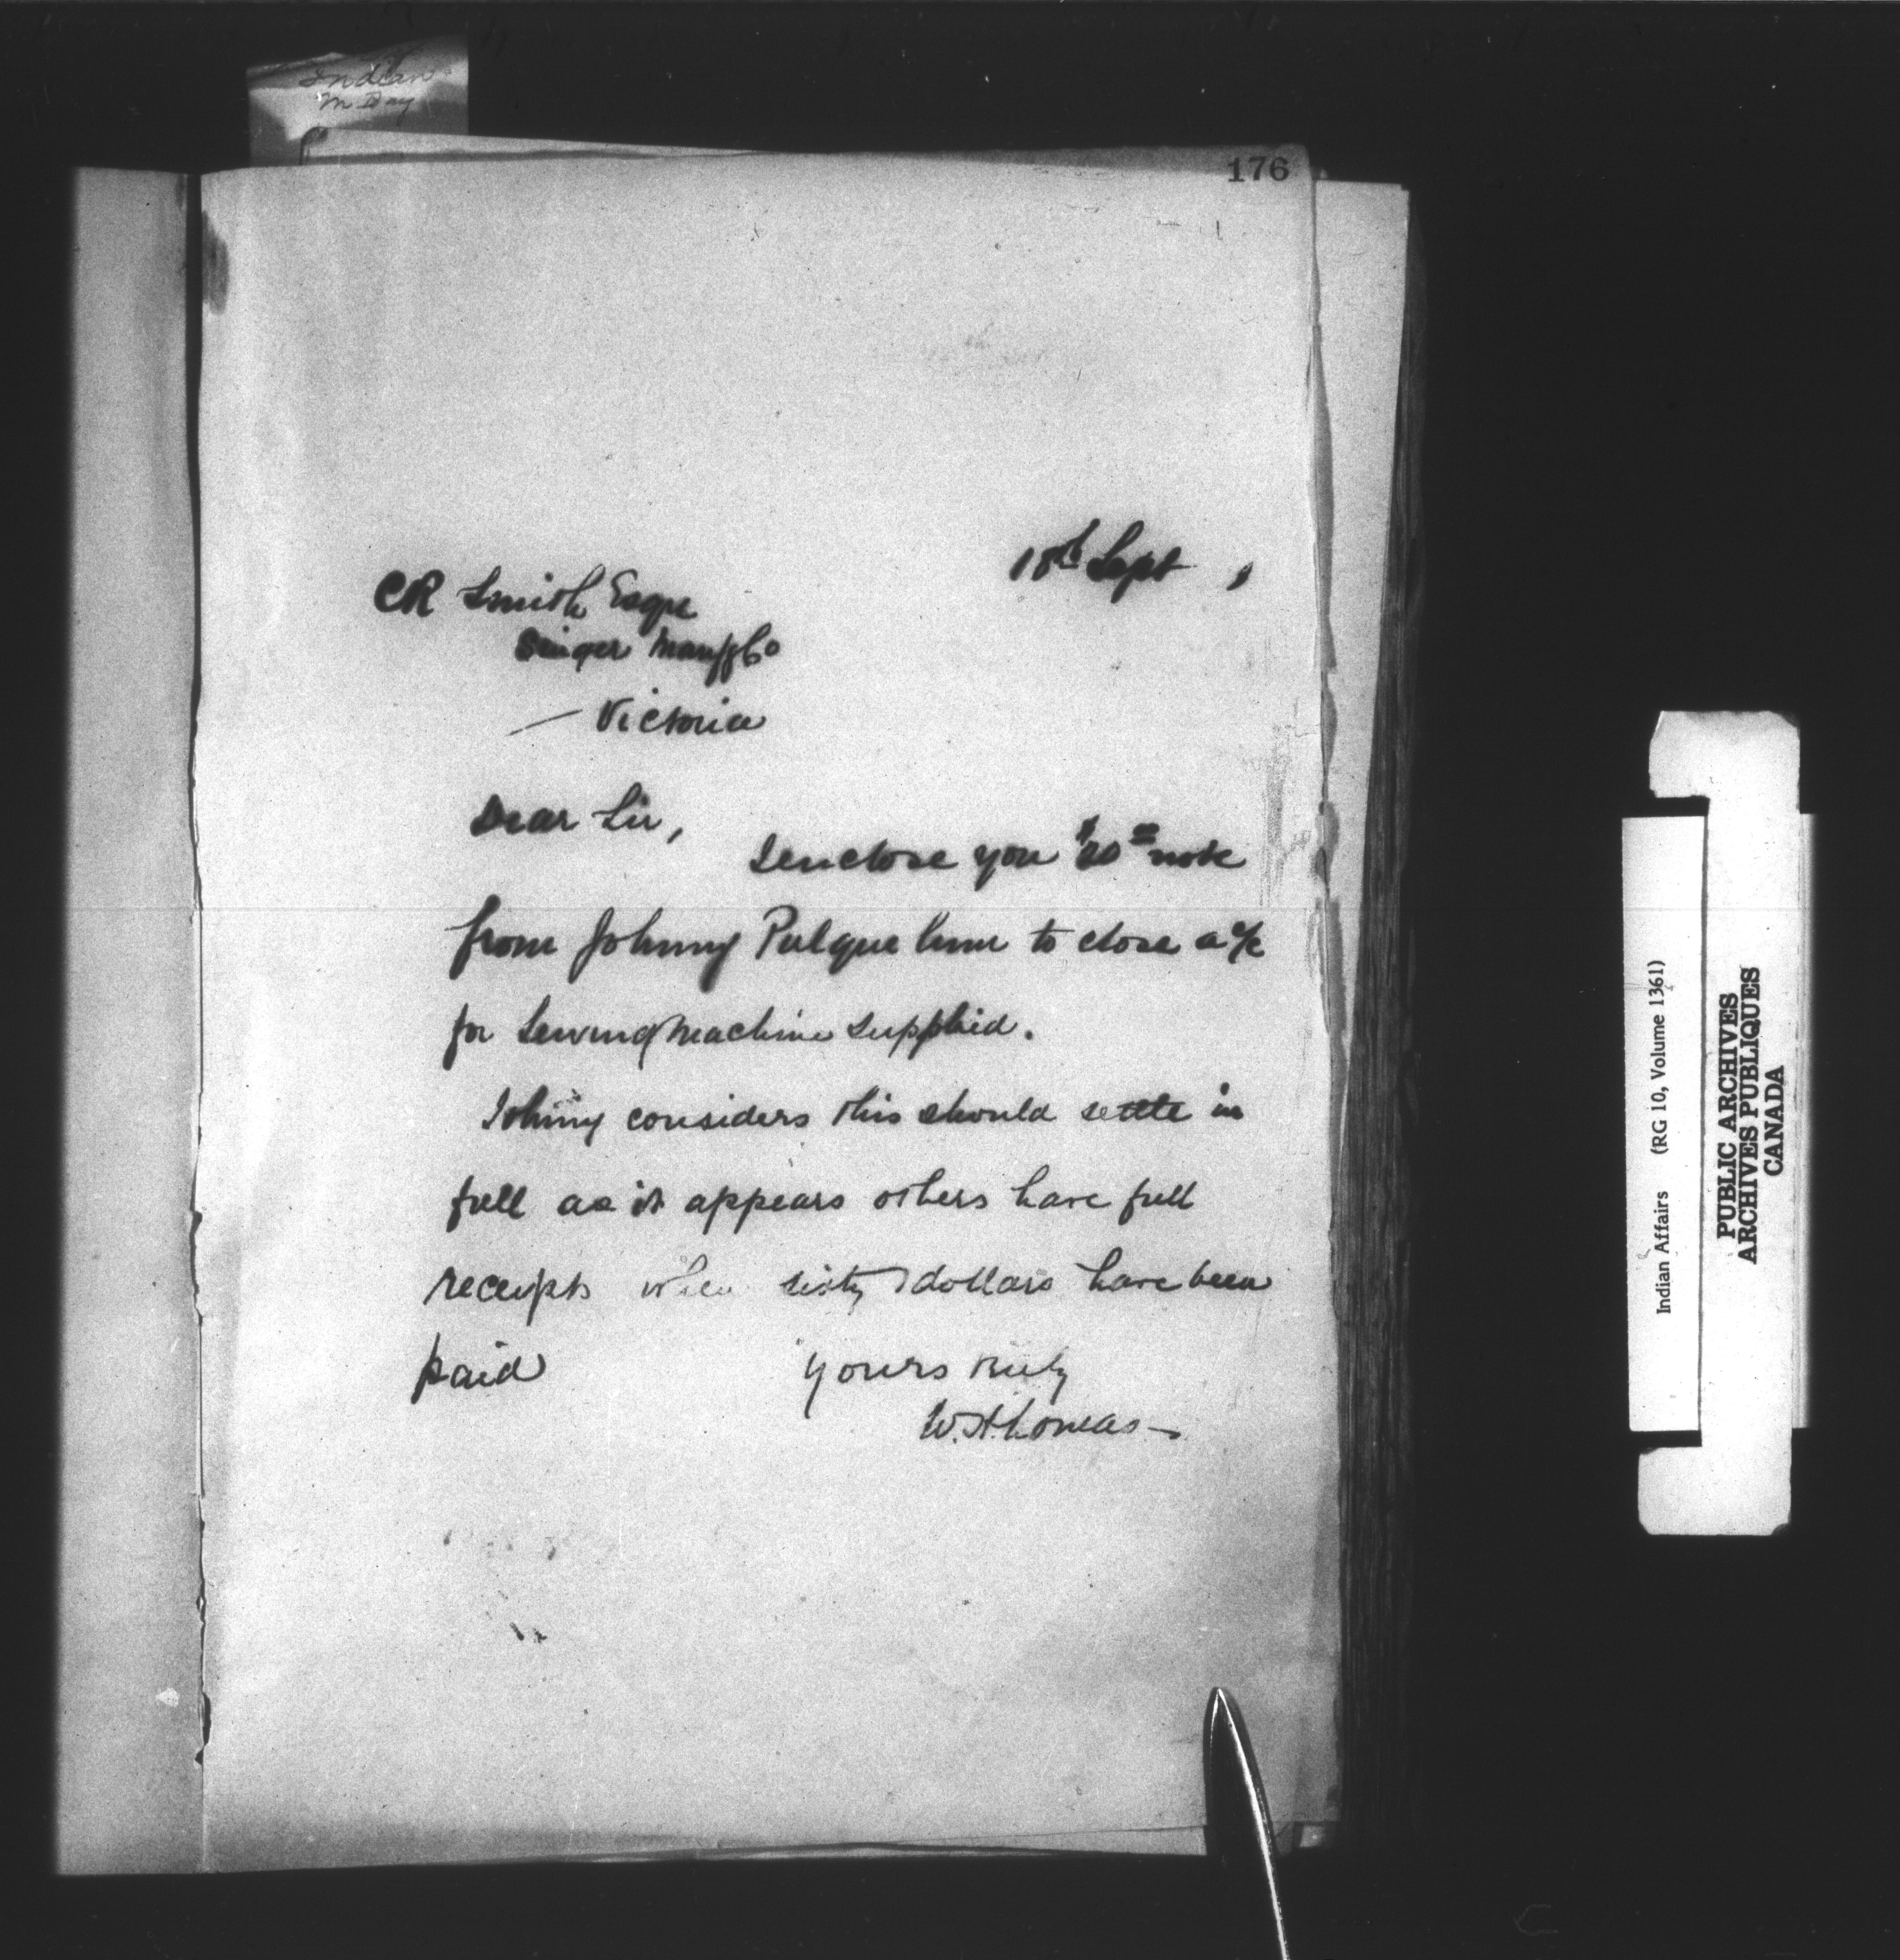 Indian
176
18th Sept
CR Smith Esqre
Singer Manfg Co
— Victoria
Dear Sir,
I enclose you $20.00 note
from Johnny to close a a/c
for Sewing Machine supplied.
Johnny considers this should settle in
full as it appears others have full
receipts when sixty dollars have been
paid Yours truly
W.H. Lomas—
Indian Affairs (RG 10, Volume 1361)
PUBLIC ARCHIVES
ARCHIVES PUBLIQUES
CANADA